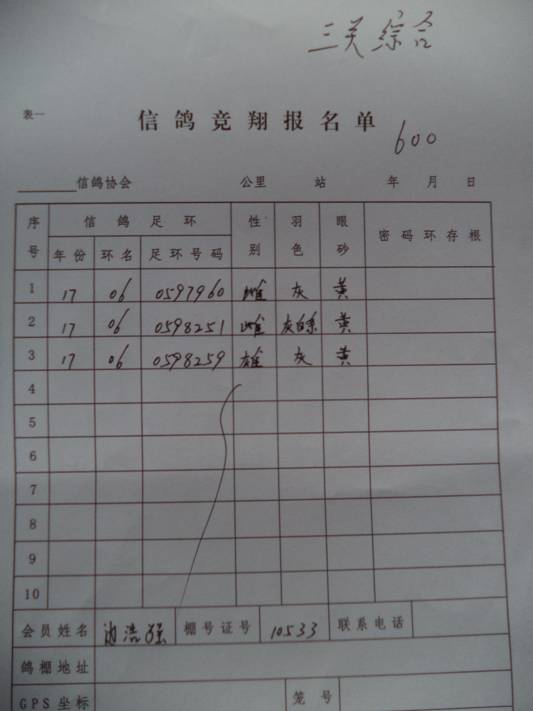 三关综合
表一
信鸽竞翔报名单
600
信鸽协会 公里 站 年 月 日
序号 信鸽足环 性别 羽色 眼砂 密码环存根
年份 环名 足环号码
1 17 06 0597960 雌 灰 黄
2 17 06 0598251 雌 灰白条 黄
3 17 06 0598259 雄 灰 黄
4
5
6
7
8
9
10
会员姓名 浩强 棚号证号 10533 联系电话
鸽棚地址
GPS坐标 笼号